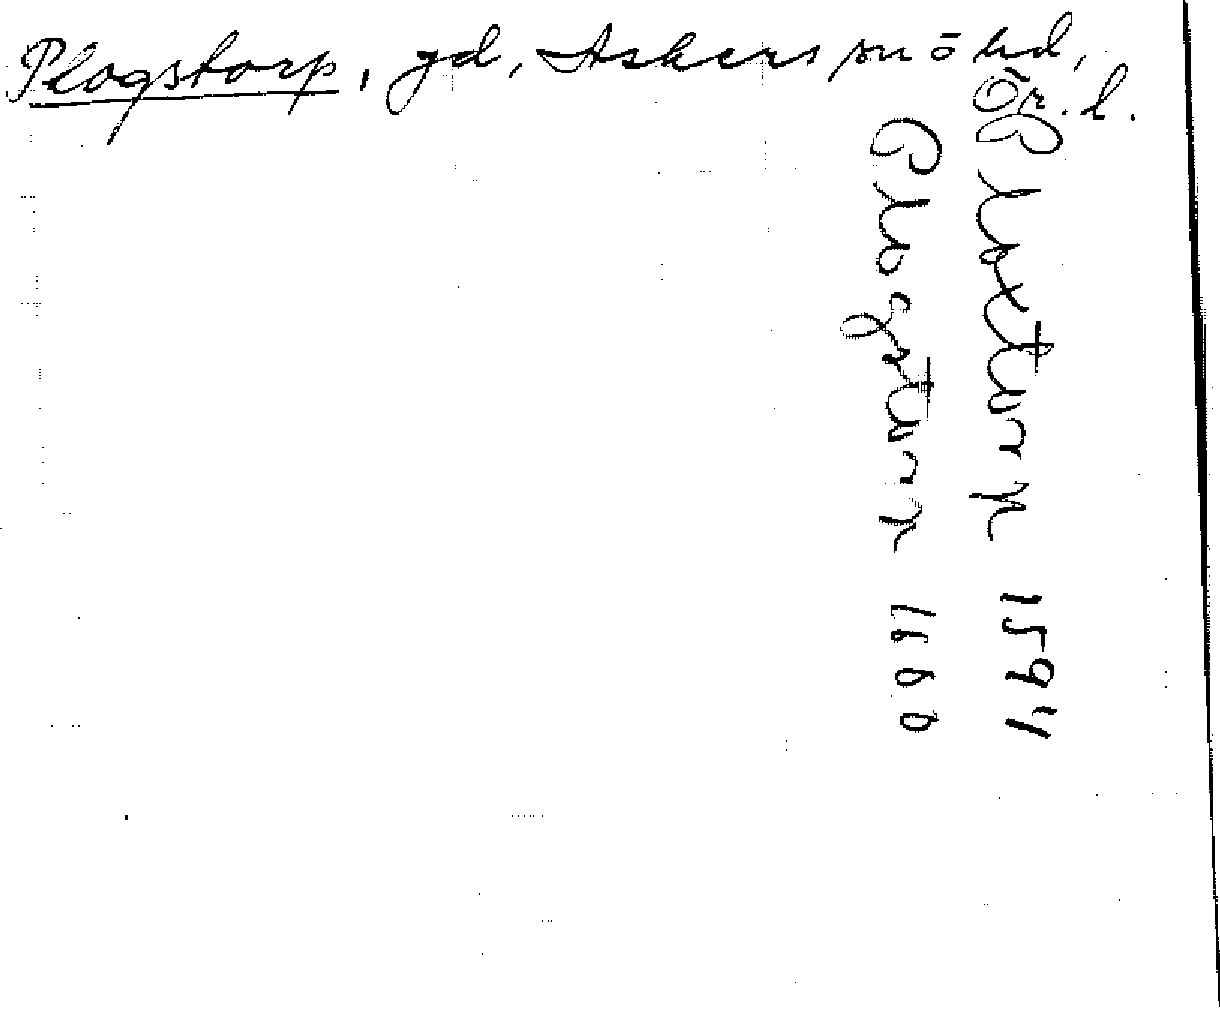 Plogstorp, gd, Askers sn o hd,
Ör. l.
Ploxtorp 1594
Plogstorp 1600